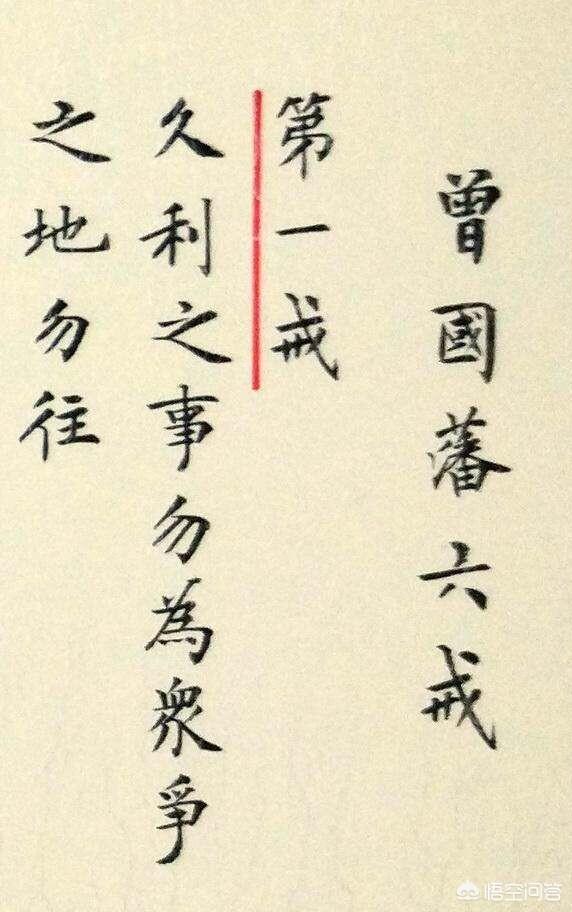 曾國藩六戒
第一戒
久利之事勿為衆爭
之地勿往
悟空问答